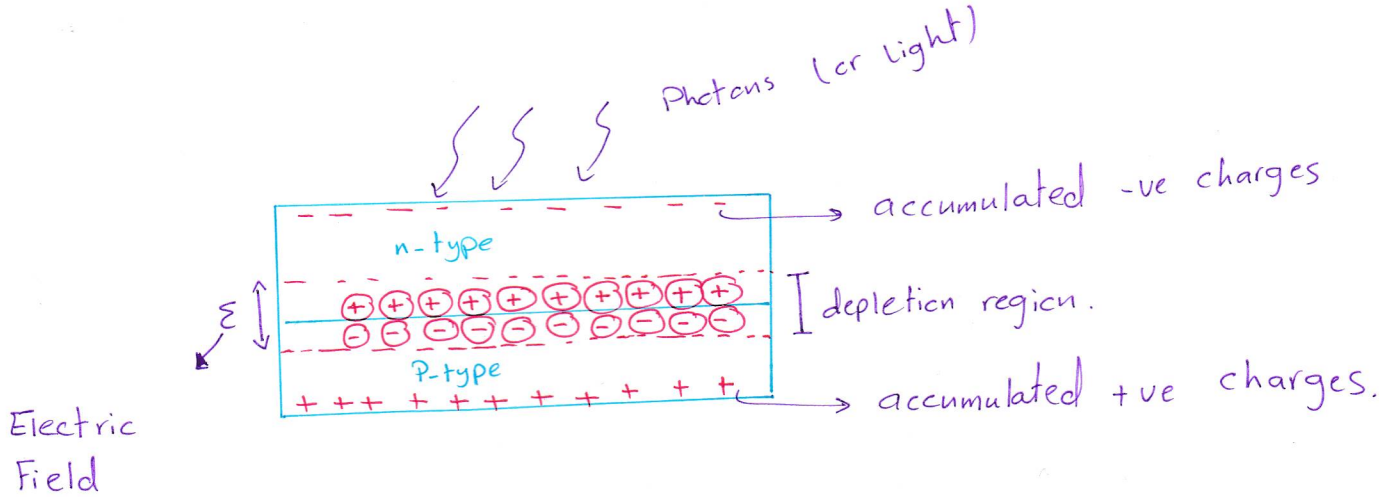 Photons (or light)
accumulated -ve charges
n-type
+ + + + + + + + + +
ε
depletion region.
- - - - - - - - - -
P-type
+ + + + + + + + + + +
accumulated +ve charges.
Electric
Field